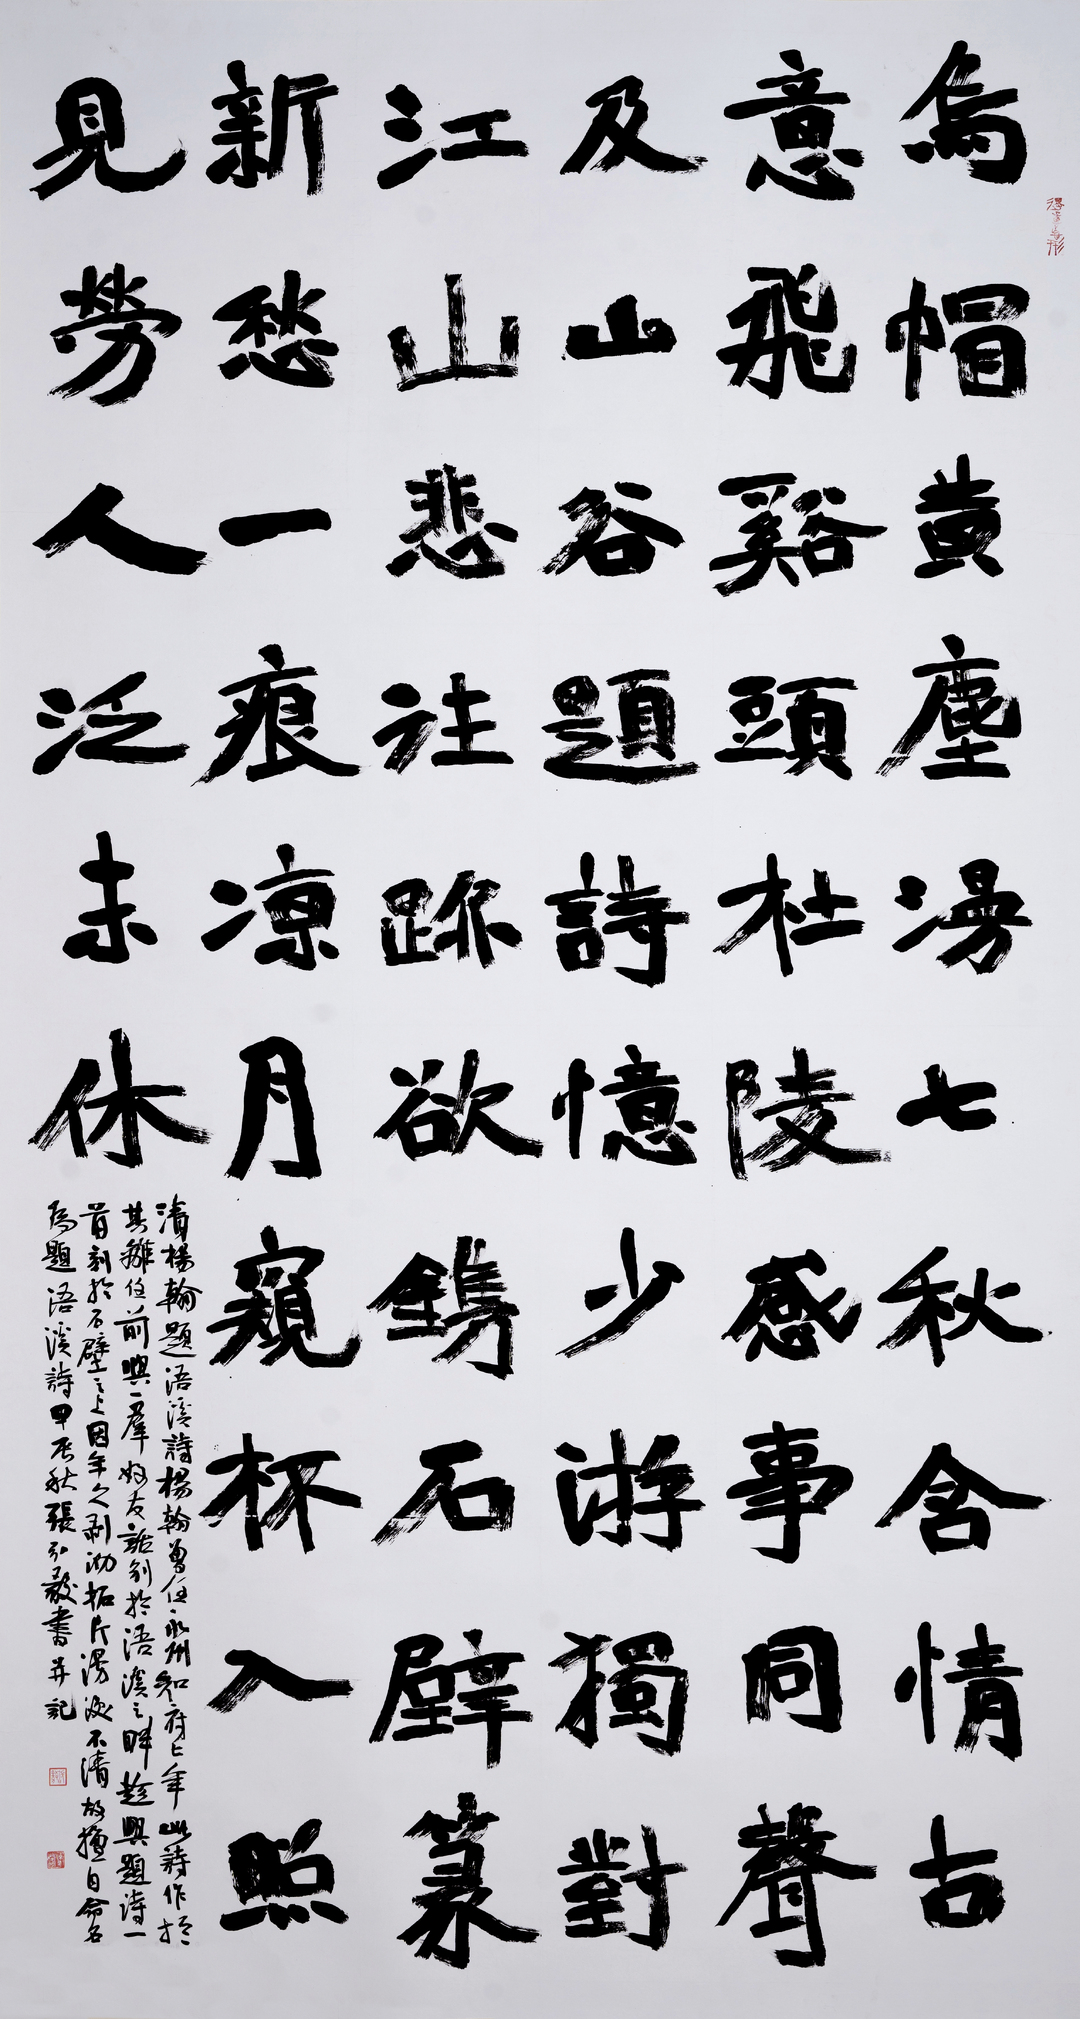 烏帽黄塵漫七秋含情古
意飛谿頭杜陵感事同聲
及山谷題詩憶少游獨對
江山悲往跡欲鐫石壁篆
新愁一痕凉月窺杯入照
見勞人泛未休
清楊翰題浯溪詩楊翰曾任永州知府七年此詩作於
其離任前與群好友話别於浯溪之畔趁興題詩一
首刻於石壁之上因年久剥泐拓片漫漶不清故擅自命名
為題浯溪詩甲辰秋張弘毅書并記